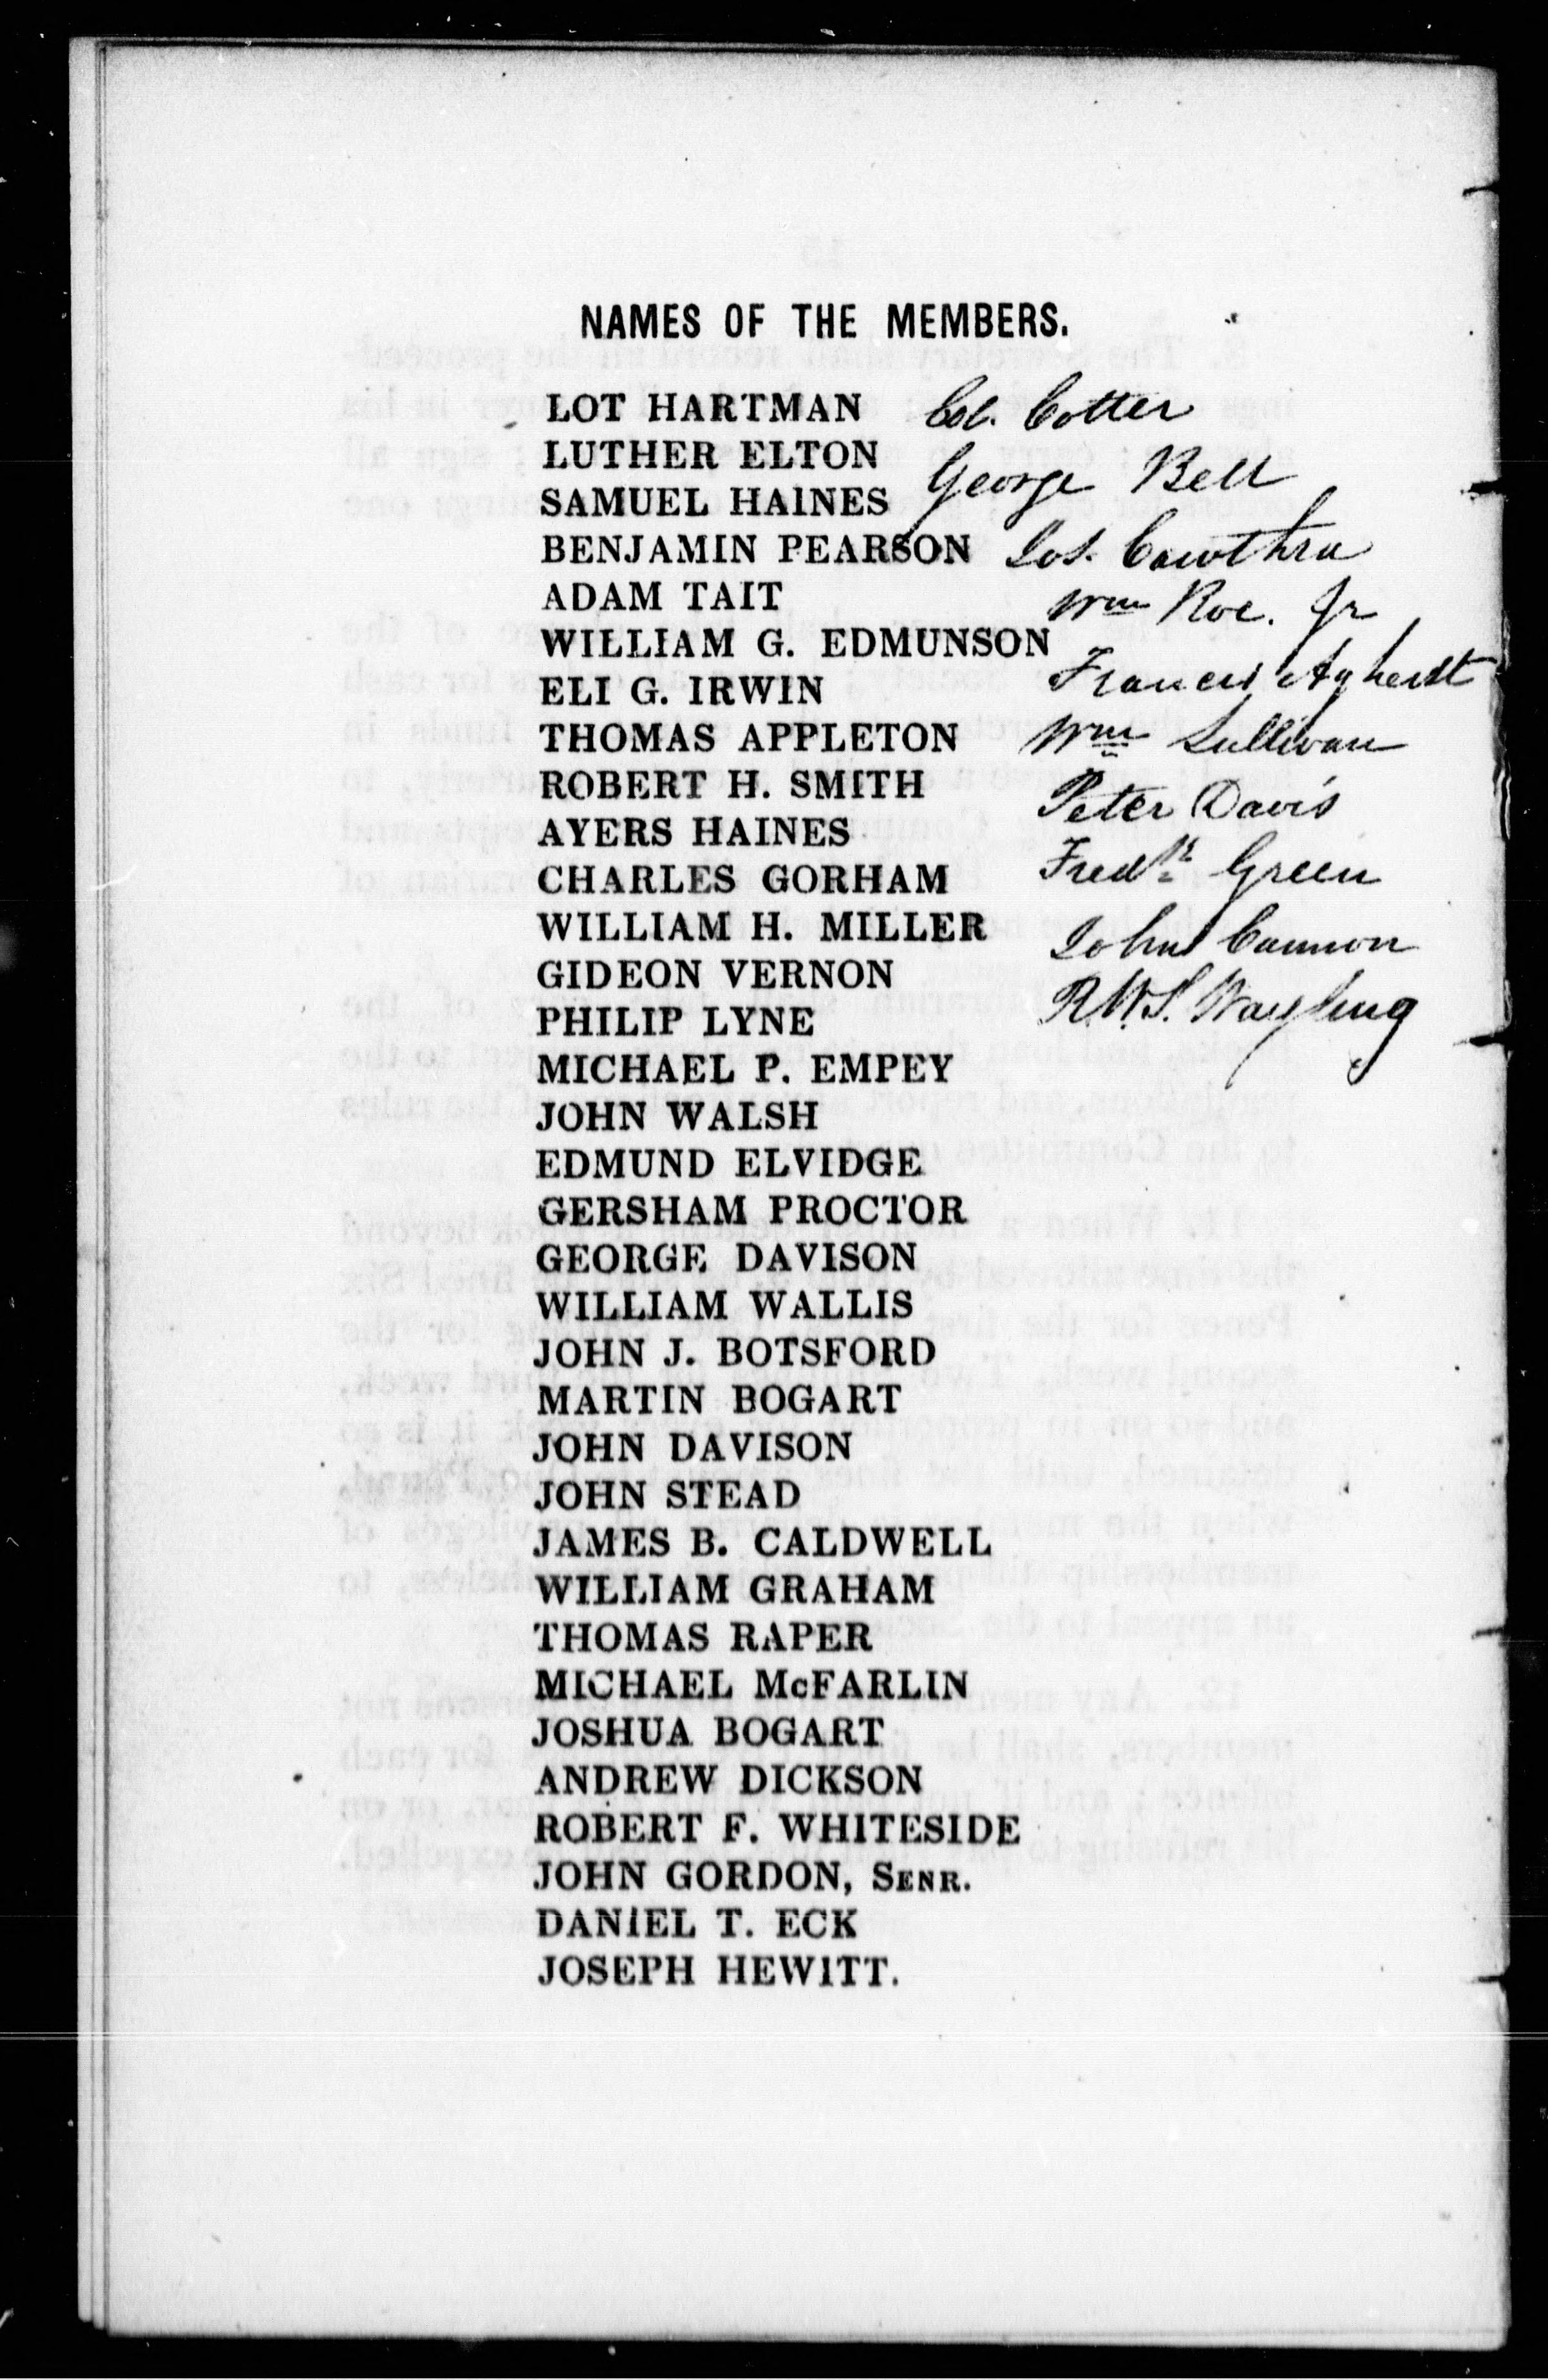 NAMES OF THE MEMBERS.
LOT HARTMAN
LUTHER ELTON
SAMUEL HAINES
BENJAMIN PEARSON
ADAM TAIT
WILLIAM G. EDMUNSON
ELI G. IRWIN
THOMAS APPLETON
ROBERT H. SMITH
AYERS HAINES
CHARLES GORHAM
WILLIAM H. MILLER
GIDEON VERNON
PHILIP LYNE
MICHAEL P. EMPEY
JOHN WALSH
EDMUND ELVIDGE
GERSHAM PROCTOR
GEORGE DAVISON
WILLIAM WALLIS
JOHN J. BOTSFORD
MARTIN BOGART
JOHN DAVISON
JOHN STEAD
JAMES B. CALDWELL
WILLIAM GRAHAM
THOMAS RAPER
MICHAEL McFARLIN
JOSHUA BOGART
ANDREW DICKSON
ROBERT F. WHITESIDE
JOHN GORDON, SENR.
DANIEL T. ECK
JOSEPH HEWITT.
Col. Cotter
George Bell
Jos. Cawthra
Wm Roe. Jr
Francis
Wm Sullivan
Peter Davis
Fredk Green
John Cannon
R.W.S.